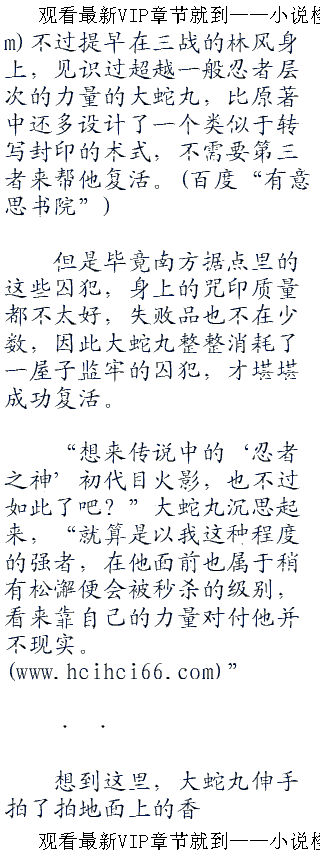 观看最新VIP章节就到——小说
m)不过提早在三战的林风身
上，见识过超越一般忍者层
次的力量的大蛇丸，比原著
中还多设计了一个类似于转
写封印的术式，不需要第三
者来帮他复活。(百度“有意
思书院”)
但是毕竟南方据点里的
这些囚犯，身上的咒印质量
都不太好，失败品也不在少
数，因此大蛇丸整整消耗了
一屋子监牢的囚犯，才堪堪
成功复活。
“想来传说中的‘忍者
之神’初代目火影，也不过
如此了吧？”大蛇丸沉思起
来，“就算是以我这种程度
的强者，在他面前也属于稍
有松懈便会被秒杀的级别，
看来靠自己的力量对付他并
不现实。
(www.hcihci66.com)”
．．
想到这里，大蛇丸伸手
拍了拍地面上的香
观看最新VIP章节就到——小说